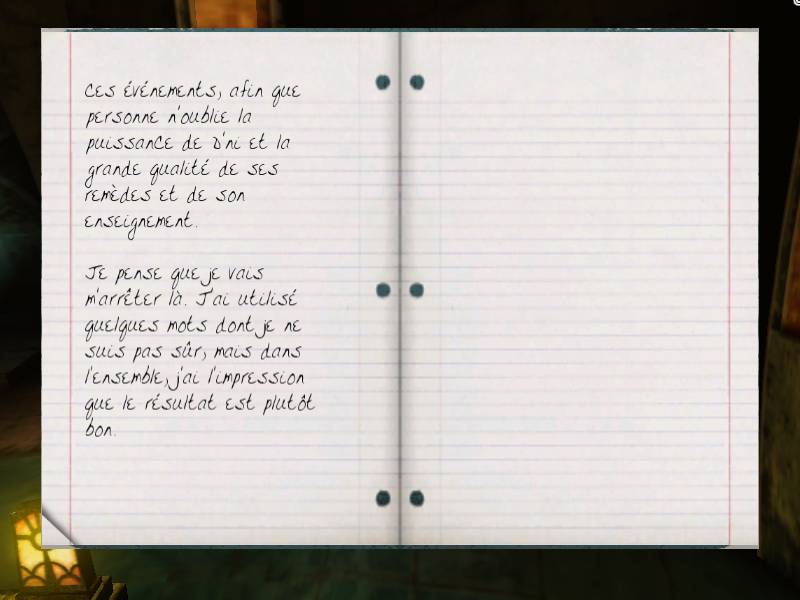 Ces événements, afin que
personne n'oublie la
puissance de D'ni et la
grande qualité de ses
remèdes et de son
enseignement.
Je pense que je vais
m'arrêter là. J'ai utilisé
quelques mots dont je ne
suis pas sûr, mais dans
l'ensemble, j'ai l'impression
que le résultat est plutôt
bon.